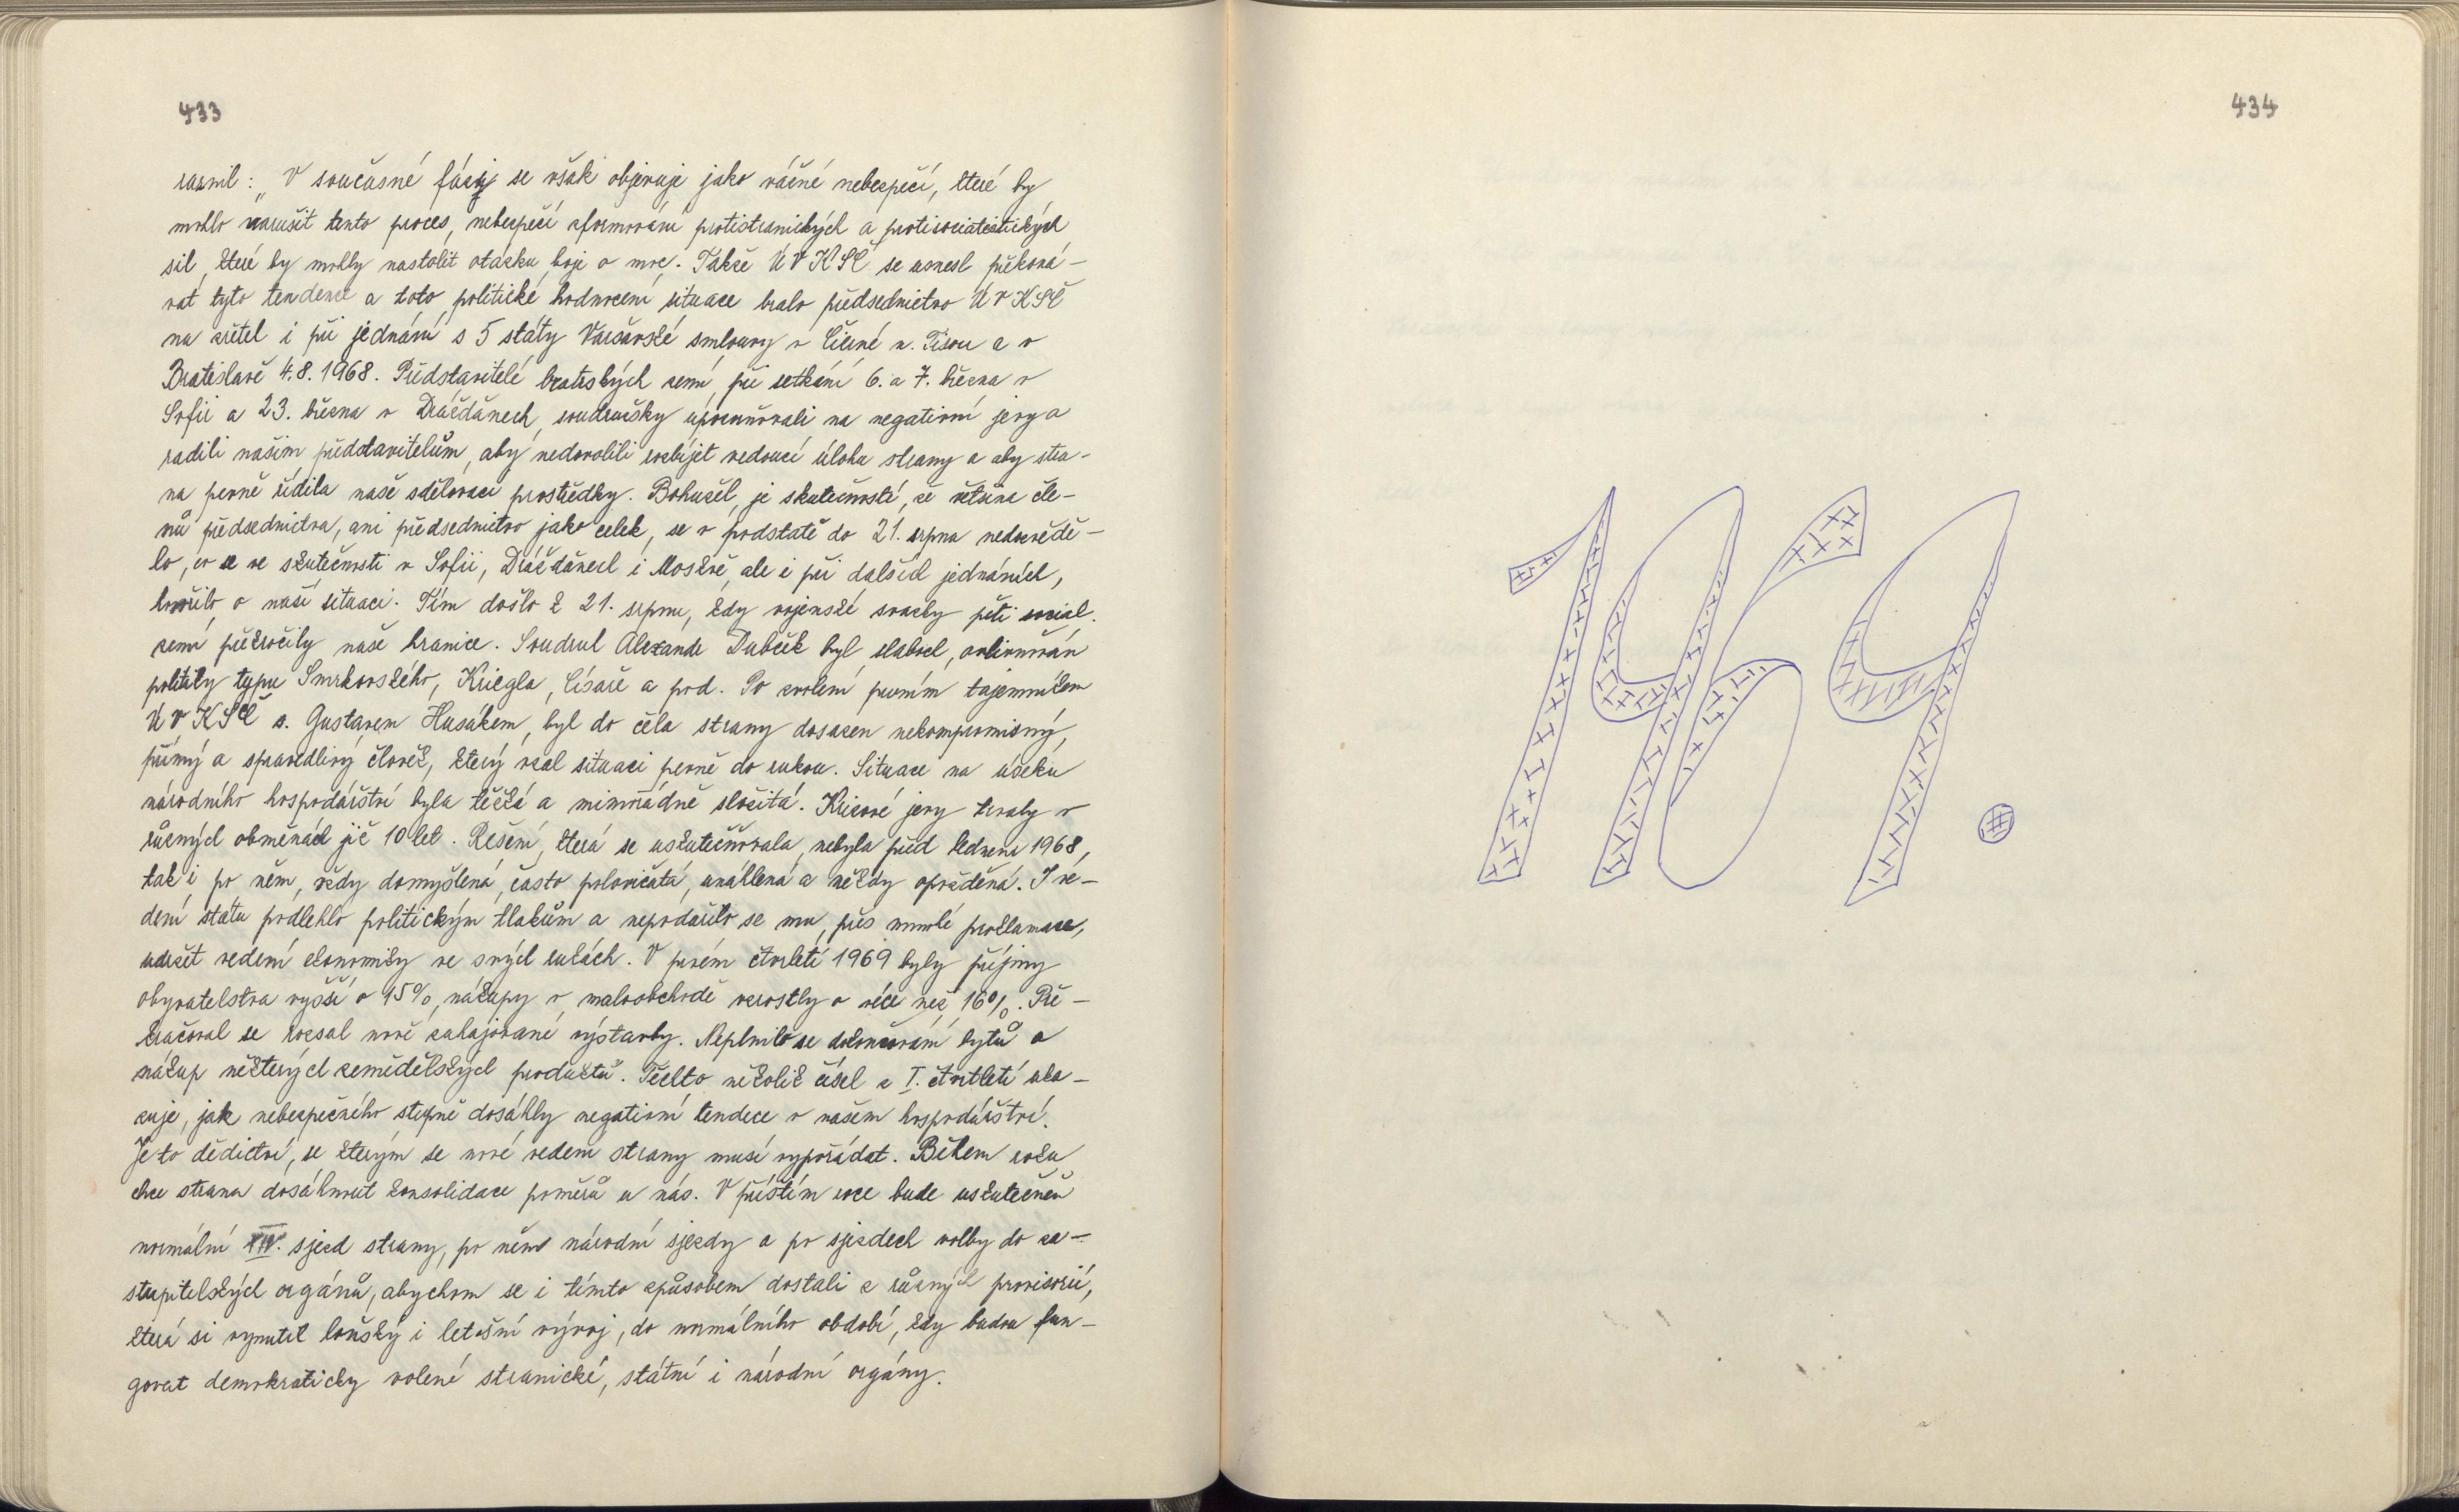 433
raznil: „V současné fázi se však objevuje jako vážné nebezpečí, které by
mohlo narušit tento proces, nebezpečí zformování protistranických a protisocialistických
sil, které by mohly nastolit otázku boje o moc. Takže ÚV KSČ se usnesl překoná-
vat tyto tendence a toto politické hodnocení situace bralo předsednictvo ÚV KSČ
na zřetel i při jednání s 5 státy Varšavské smlouvy v Čierné n. Tisou a v
Bratislavě 4.8.1968. Představitelé bratrských zemí při setkání 6. a 7. března v
Sofii a 23. března v Drážďanech, soudružsky upozorňovali na negativní jevy a
radili našim představitelům, aby nedovolili rozbíjet vedoucí úlohu strany a aby stra-
na pevně řídila naše sdělovací prostředky. Bohužel, je skutečností, že většina čle-
nů předsednictva, ani předsednictvo jako celek, se v podstatě do 21. srpna nedozvědě-
lo, co se ve skutečnosti v Sofii, Drážďanech i Moskvě, ale i při dalších jednáních,
hovořilo o naší situaci. Tím došlo k 21. srpnu, kdy vojenské svazky pěti social.
zemí překročily naše hranice. Soudruh Alexandr Dubček byl slaboch, ovlivňován
politiky typu Smrkovského, Kriegla, Císaře a pod. Po zvolení prvním tajemníkem
ÚV KSČ s. Gustavem Husákem, byl do čela strany dosazen nekompromisný,
přímý a spravedlivý člověk, který vzal situaci pevně do rukou. Situace na úseku
národního hospodářství byla těžká a mimořádně složitá. Krizové jevy trvaly v
různých obměnách již 10 let. Řešení, která se uskutečňovala, nebyla před lednem 1968,
tak i po něm, vždy domyšlená, často polovičatá, unáhlená a někdy opožděná. I ve-
dení státu podlehlo politickým tlakům a nepodařilo se mu, přes mnohé proklamace,
udržet vedení ekonomiky ve svých rukách. V prvém čtvrtletí 1969 byly příjmy
obyvatelstva vyšší o 15%, nákupy v maloobchodě vzrostly o více než 16%. Pře-
kračoval se rozsah nově zahajované výstavby. Neplnilo se dokončování bytů a
nákup některých zemědělských produktů. Těchto několik čísel z I. čtvrtletí uka-
zuje, jak nebezpečného stupně dosáhly negativní tendece v našem hospodářství.
Je to dědictví, se kterým se nové vedení strany musí vypořádat. Během roku
chce strana dosáhnout konsolidace poměrů u nás. V příštím roce bude uskutečněn
normální XIV. sjezd strany, po něm národní sjezdy a po sjezdech volby do za-
stupitelských orgánů, abychom se i tímto způsobem dostali z různých provizorií,
která si vynutil loňský i letošní vývoj, do normálního období, kdy budou fun-
govat demokraticky volené stranické, státní i národní orgány.
434
1969.